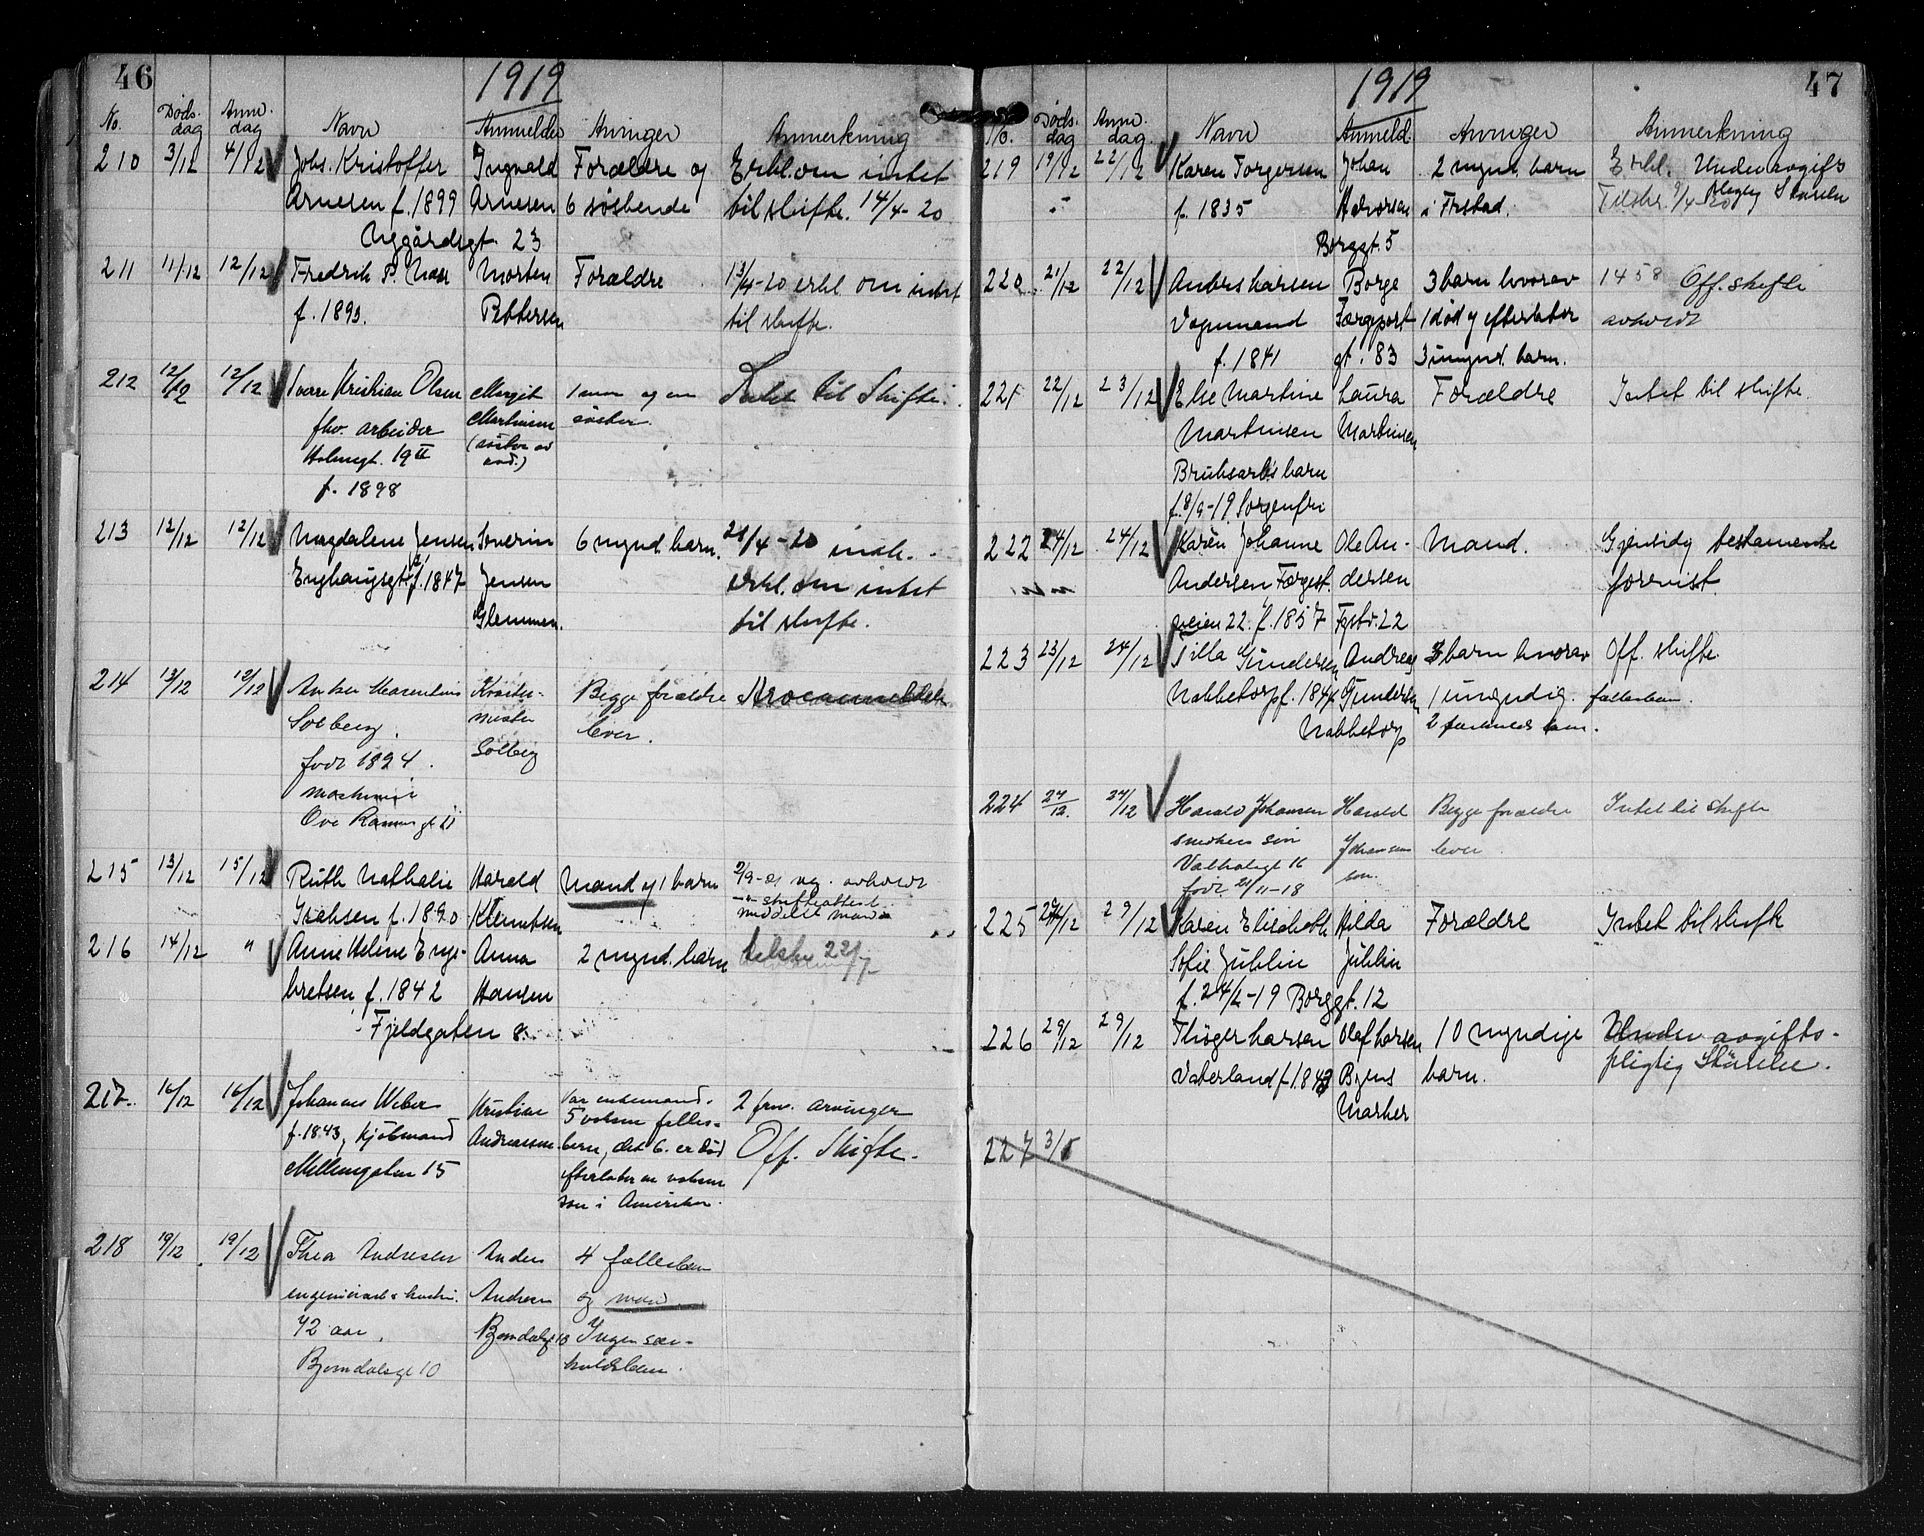 46
1919
No. Døds- dag Anm. dag Navn Anmelder Arvinger Anmerkning
210 3/12 4/12 Johs. Kristoffer Ingvald Forældre og Erkl. om intet
Arnesen f. 1899 Arnesen 6 søskende til skifte. 14/4-20
23
211 11/12 12/12 Fredrik P. Morten Forældre 13/4-20 erkl. om intet
f. 1893. Pettersen til skifte.
212 12/12 12/12 Kristian Olsen Margit 1 mor og en Intet til Skifte.
fhv. arbeider Martinsen søster
Holmegt. 19 II (søster av
f. 1898 avd.)
213 12/12 12/12 Magdalene Jensen Severin 6 mynd. barn. 28/4-20
Enghaugsgt. f. 1847 Jensen erkl. om intet
Glemmen. til skifte.
214 13/12 13/12 Anker Marentius Begge forældre
Solberg, mester lever.
født 1824. Solberg
maskinist
Ove Ramms gt 11
215 13/12 15/12 Ruth Nathalie Harald Mand og 1 barn avholdt
f. 1890 Klemetsen skifteattest
meddelt
216 14/12 " Anne Helene Enge- Anna 2 mynd. barn
bretsen f. 1842 Hansen
Fjeldgaten 8.
217. 16/12 16/12 Johannes Weber Kristian Var enkemand. 2 frav. arvinger
f. 1843, kjøbmand Andreassen 5 voksne felles- Off. Skifte.
Møllergaten 15 barn, det 6. er død
efterlater en voksen
søn i Amerika.
218 19/12 19/12 Thea Andresen Anders 4 fællesbarn
ingeniørs hustru. Andresen og mand.
42 aar. Bjorndalsgt 10 Ingen sær-
Bjorndalsgt 10 kuldsbarn.
47
1919
No. Døds. dag Anm. dag. Navn Anmeld. Arvinger Anmerkning
219 19/12 22/12 Karen Torgersen Johan 2 mynd. barn Erkl. Under avgifts
f. 1835 Halvorsen i Frstad. pligtig Størrelse
Borggt. 5
220 21/12 22/12 Anders Larsen Borge 3 barn hvorav 1458 Off. skifte
Vognmand Færgeport- 1 død og efterlater avholdt
f. 1841 gt. 83 3 umynd. barn.
221 22/12 23/12 Else Martine Laura Forældre Intet til skifte.
Martinsen Martinsen
Bruksarb.s barn
f. 8/9-19. Sorgenfri
222 24/12 24/12 Karen Johanne Ole An- Mand. Gjensidig testamente
Andersen, Færgest. dersen forevist.
veien 22. f. 1857 22
223 23/12 24/12 Tilla Gundersen Andreas 3 barn hvorav Off. skifte
Nabbetorp f. 1844 Gundersen 1 umyndig. fællesbarn.
Nabbetorp 2 barn.
224 24/12. 24/12 Harald Johansen Harald Begge forældre Intet til skifte
snekers søn Johansen lever.
Valhalsgt 16
født 21/11-18
225 24/12 29/12 Karen Elisabeth Hilda Forældre Intet til skifte
Sofie Juhlin Juhlin
f. 24/2-19 Borggt. 12
226 29/12 29/12 Thøger Larsen Olaf Larsen 10 myndige Under avgifts-
Vaterland f. 1843 Byens barn. pligtig Størrelse.
Marker
227 3/1